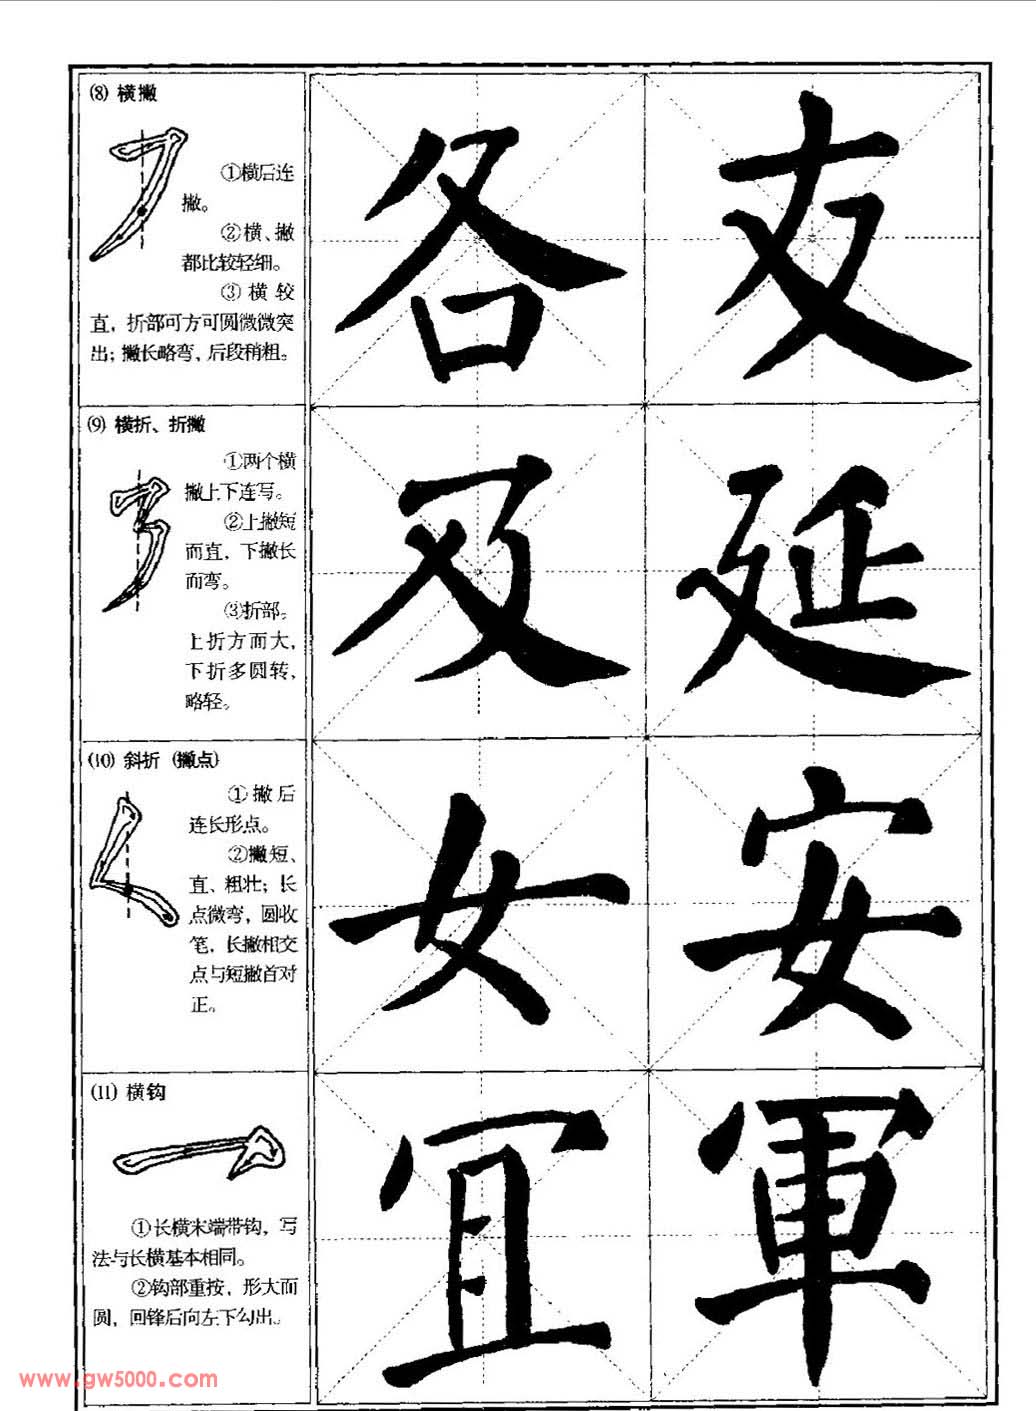 ⑻ 横撇
①横后连
撇。
②横、撇
都比较轻细。
③ 横 较
直，折部可方可圆微微突
出；撇长略弯，后段稍粗。
各 支
⑼ 横折、折撇
①两个横
撇上下连写。
②上撇短
而直，下撇长
而弯。
③折部。
上折方而大，
下折多圆转，
略轻。
及 延
⑽ 斜折（撇点）
①撇后
连长形点。
②撇短、
直、粗壮；长
点微弯，圆收
笔，长撇相交
点与短撇首对
正。
女 安
⑾ 横钩
①长横末端带钩，写
法与长横基本相同。
②钩部重按，形大而
圆，回锋后向左下勾出。
冝 軍
www.gw5000.com